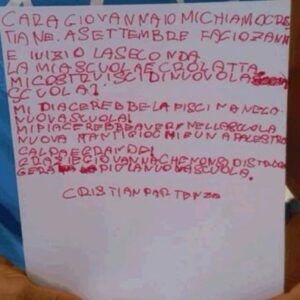 CARA GIOVANNA IO MI CHIAMO CRIS
TIAN E. A SETTEMBRE FACIO 7 ANNI
E INIZIO LA SECONDA
LA MIA SCUOLA È CROLATTA
MI COSTRUISCI DI NUVOLA
SCUOLA?
MI PIACEREBBE LA PISCINA NELA
NUOVA SCUOLA!
MI PIACEREBBE AVERE NELLA SCUOLA
NUOVA TANTI GIOCHI E UNA PALESTRA
CALDA E GRANDE!
GRAZIE GIOVANNA CHE NON SI DISTRUG
GERÀ PIÙ LA NUOVA SCUOLA.
CRISTIAN PARTENZO